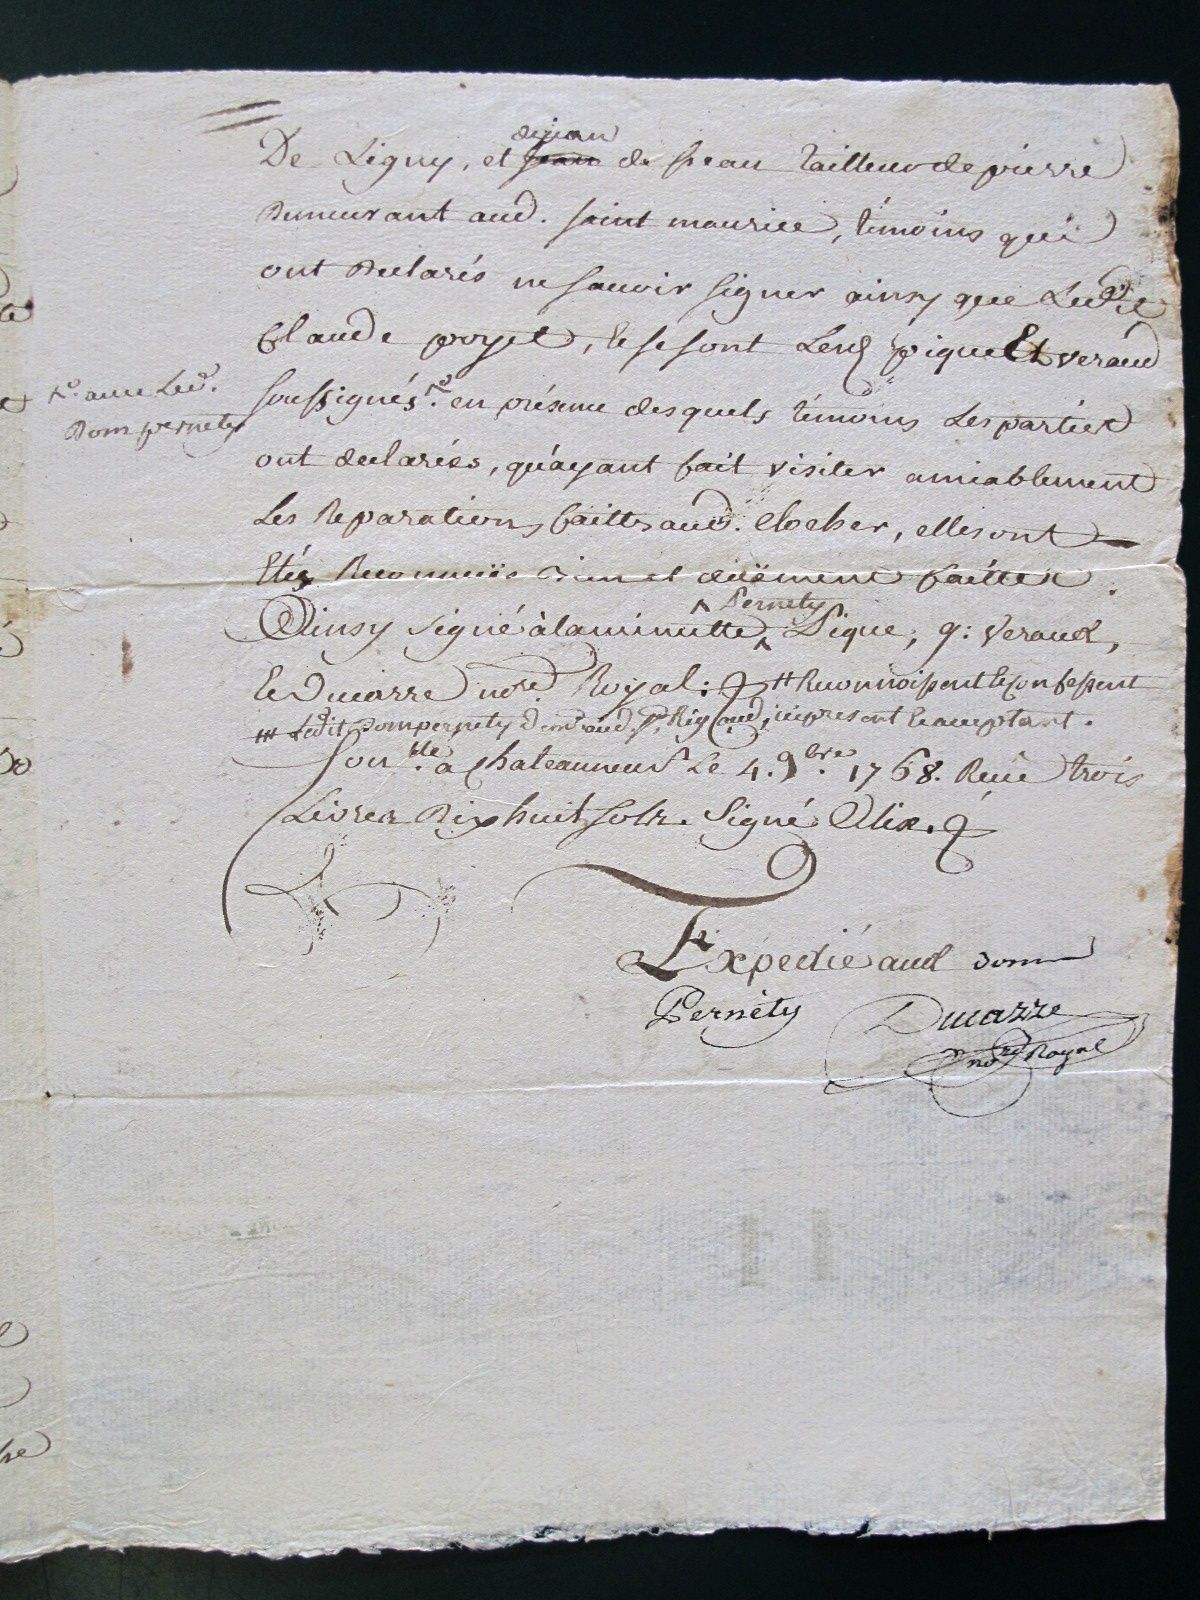 dejean
De Ligny, et jean de jean tailleur de pierre
Demeurant aud. saint maurice, témoins qui
ont Declarés ne sauoir signer ainsy que Led. Sr
Claude poyet, & se sont Lesd. pique Et veraud
soussignés, en présence desquels témoins Les parties
+o. auec Led.
Dom pernety
ont declarées, qu'ayant fait visiter amiablement
Les Reparations faittes aud. Clocher, elles ont
Etés Reconnües bien et duëment faittes.
Pernety
Ainsy signé à la minutte, Pique, g: Veraud,
& Ducarre no.re Royal: # Reconnoissent & Confessent
### Ledit Dom pernety aud. ici present & acceptant.
Con.lle a Chateauneuf Le 4. 9bre. 1768. Recû trois
Livres Dix huit sols. Signé Alix.
Expedié aud dom
Pernety
Ducarre
no.re Royal